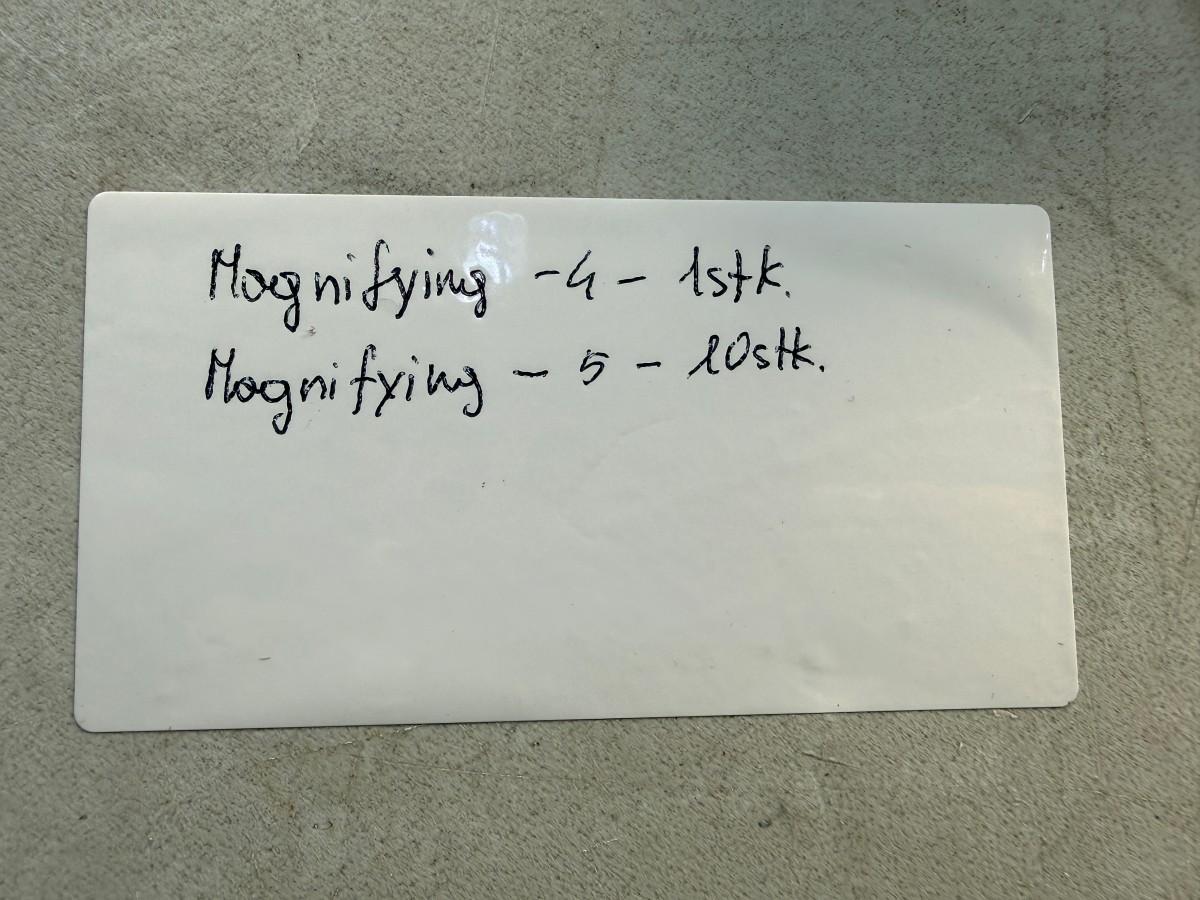 Magnifying - 4 - 1stk.
Magnifying - 5 - 10stk.